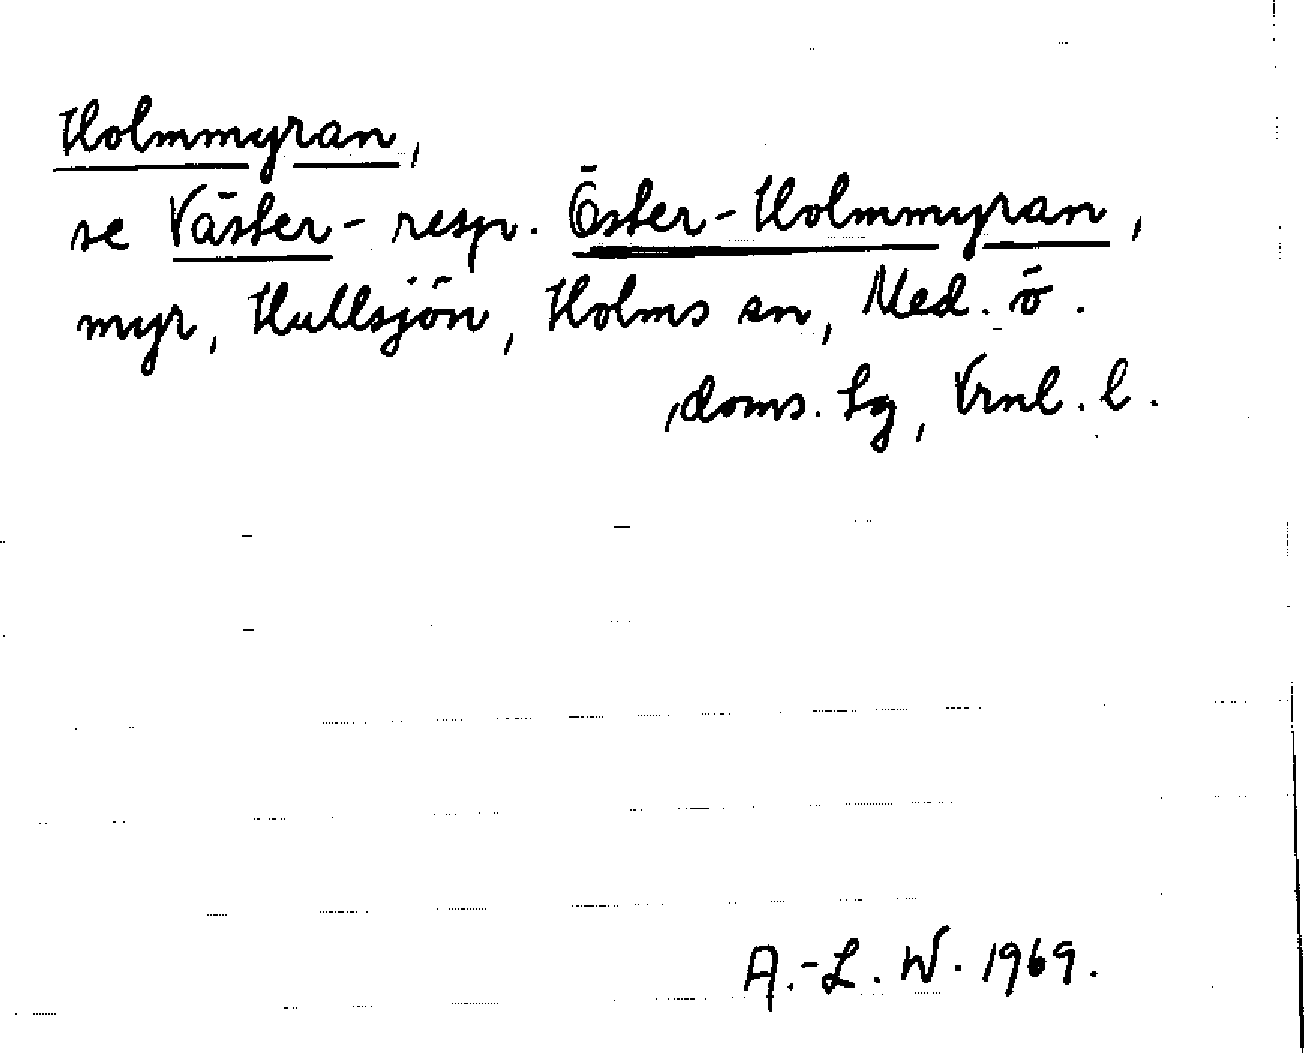 Holmmyran,
se Väster- resp. Öster-Holmmyran,
myr, Hullsjön, Holms sn, Med. ö.
doms. lg, Vrnl. l.
A.-L. W. 1969.